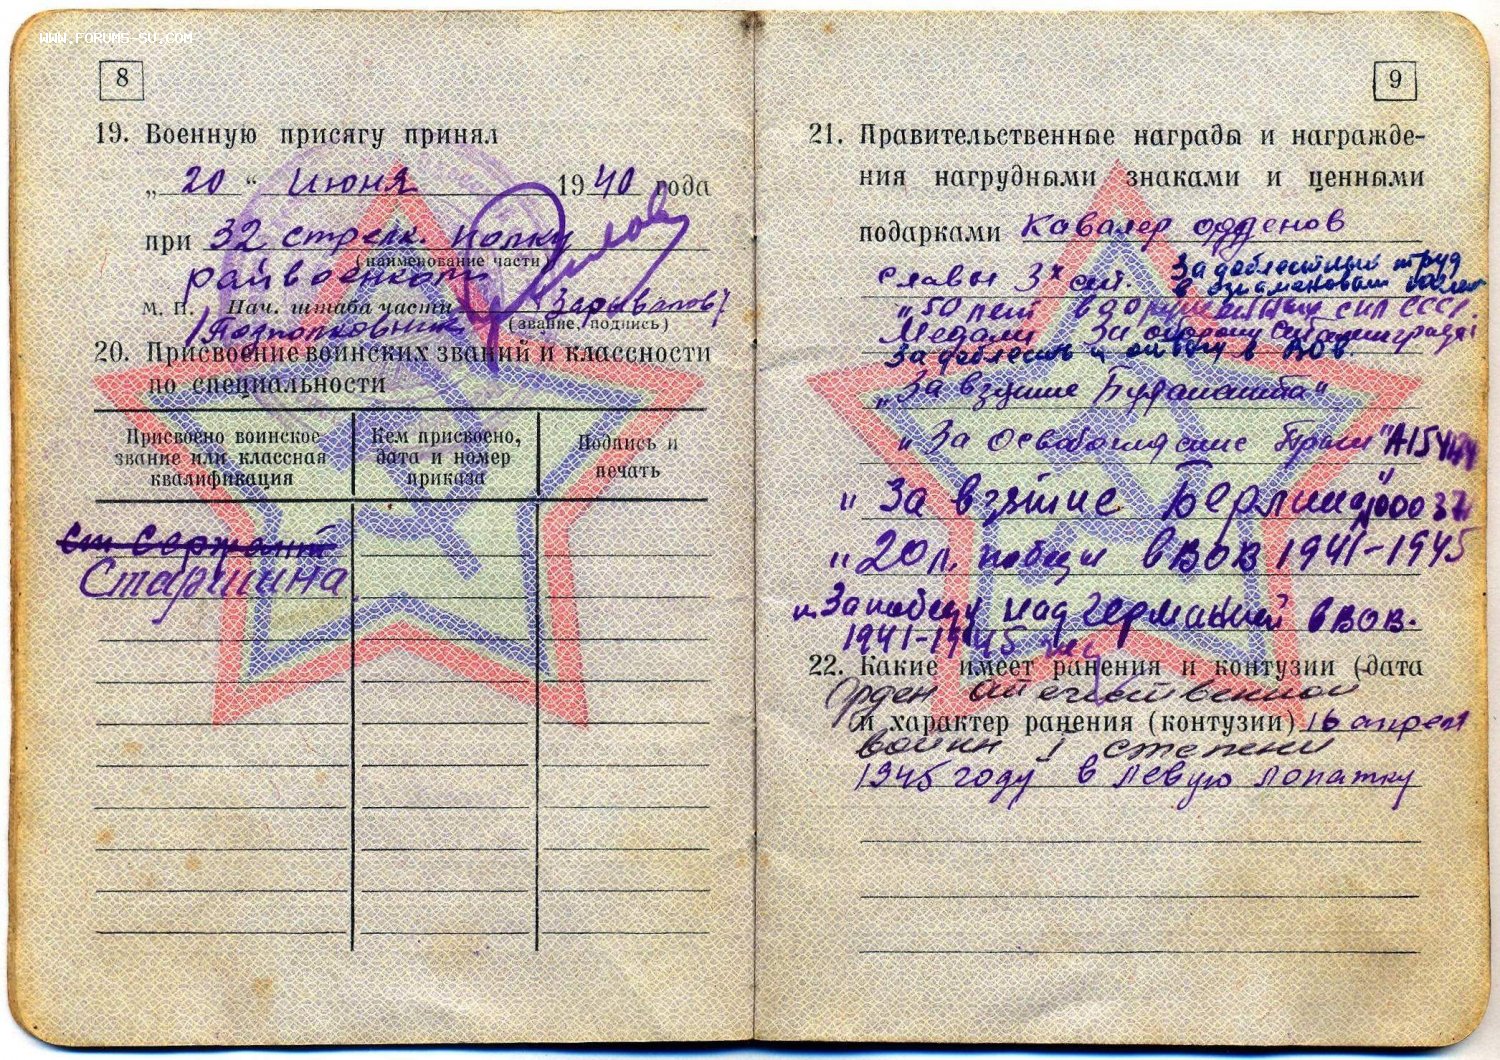 WWW.FORUMS-SU.COM
8
19. Военную присягу принял
„ 20 “ июня 1940 года
при 32 стрелк. полку
(наименование части)
райвоенком
М. П. Нач. штаба части
(звание, подпись)
/Подполковник
20. Присвоение воинских званий и классности
по специальности
Присвоено воинское
звание или классная
квалификация
Кем присвоено,
дата и номер
приказа
Подпись и
печать
ст сержант
Старшина
9
21. Правительственные награды и награжде-
ния нагрудными знаками и ценными
подарками Кавалер орденов
Славы 3х ст. За доблестный труд
в ознаменован
„50 лет вооруженных сил СССР.
Медали За оборону
За доблесть и отвагу в ВОв.
„За взятие Будапешта"
„За Освобождение Праги" А1
„За взятие Берлина"
„20 л. победы в ВОВ 1941-1945
„За победу над Германией в ВОВ.
1941-1945
22. Какие имеет ранения и контузии (дата
Орден Отечественной
и характер ранения (контузии) 16 апреля
войны I степени
1945 году в левую лопатку